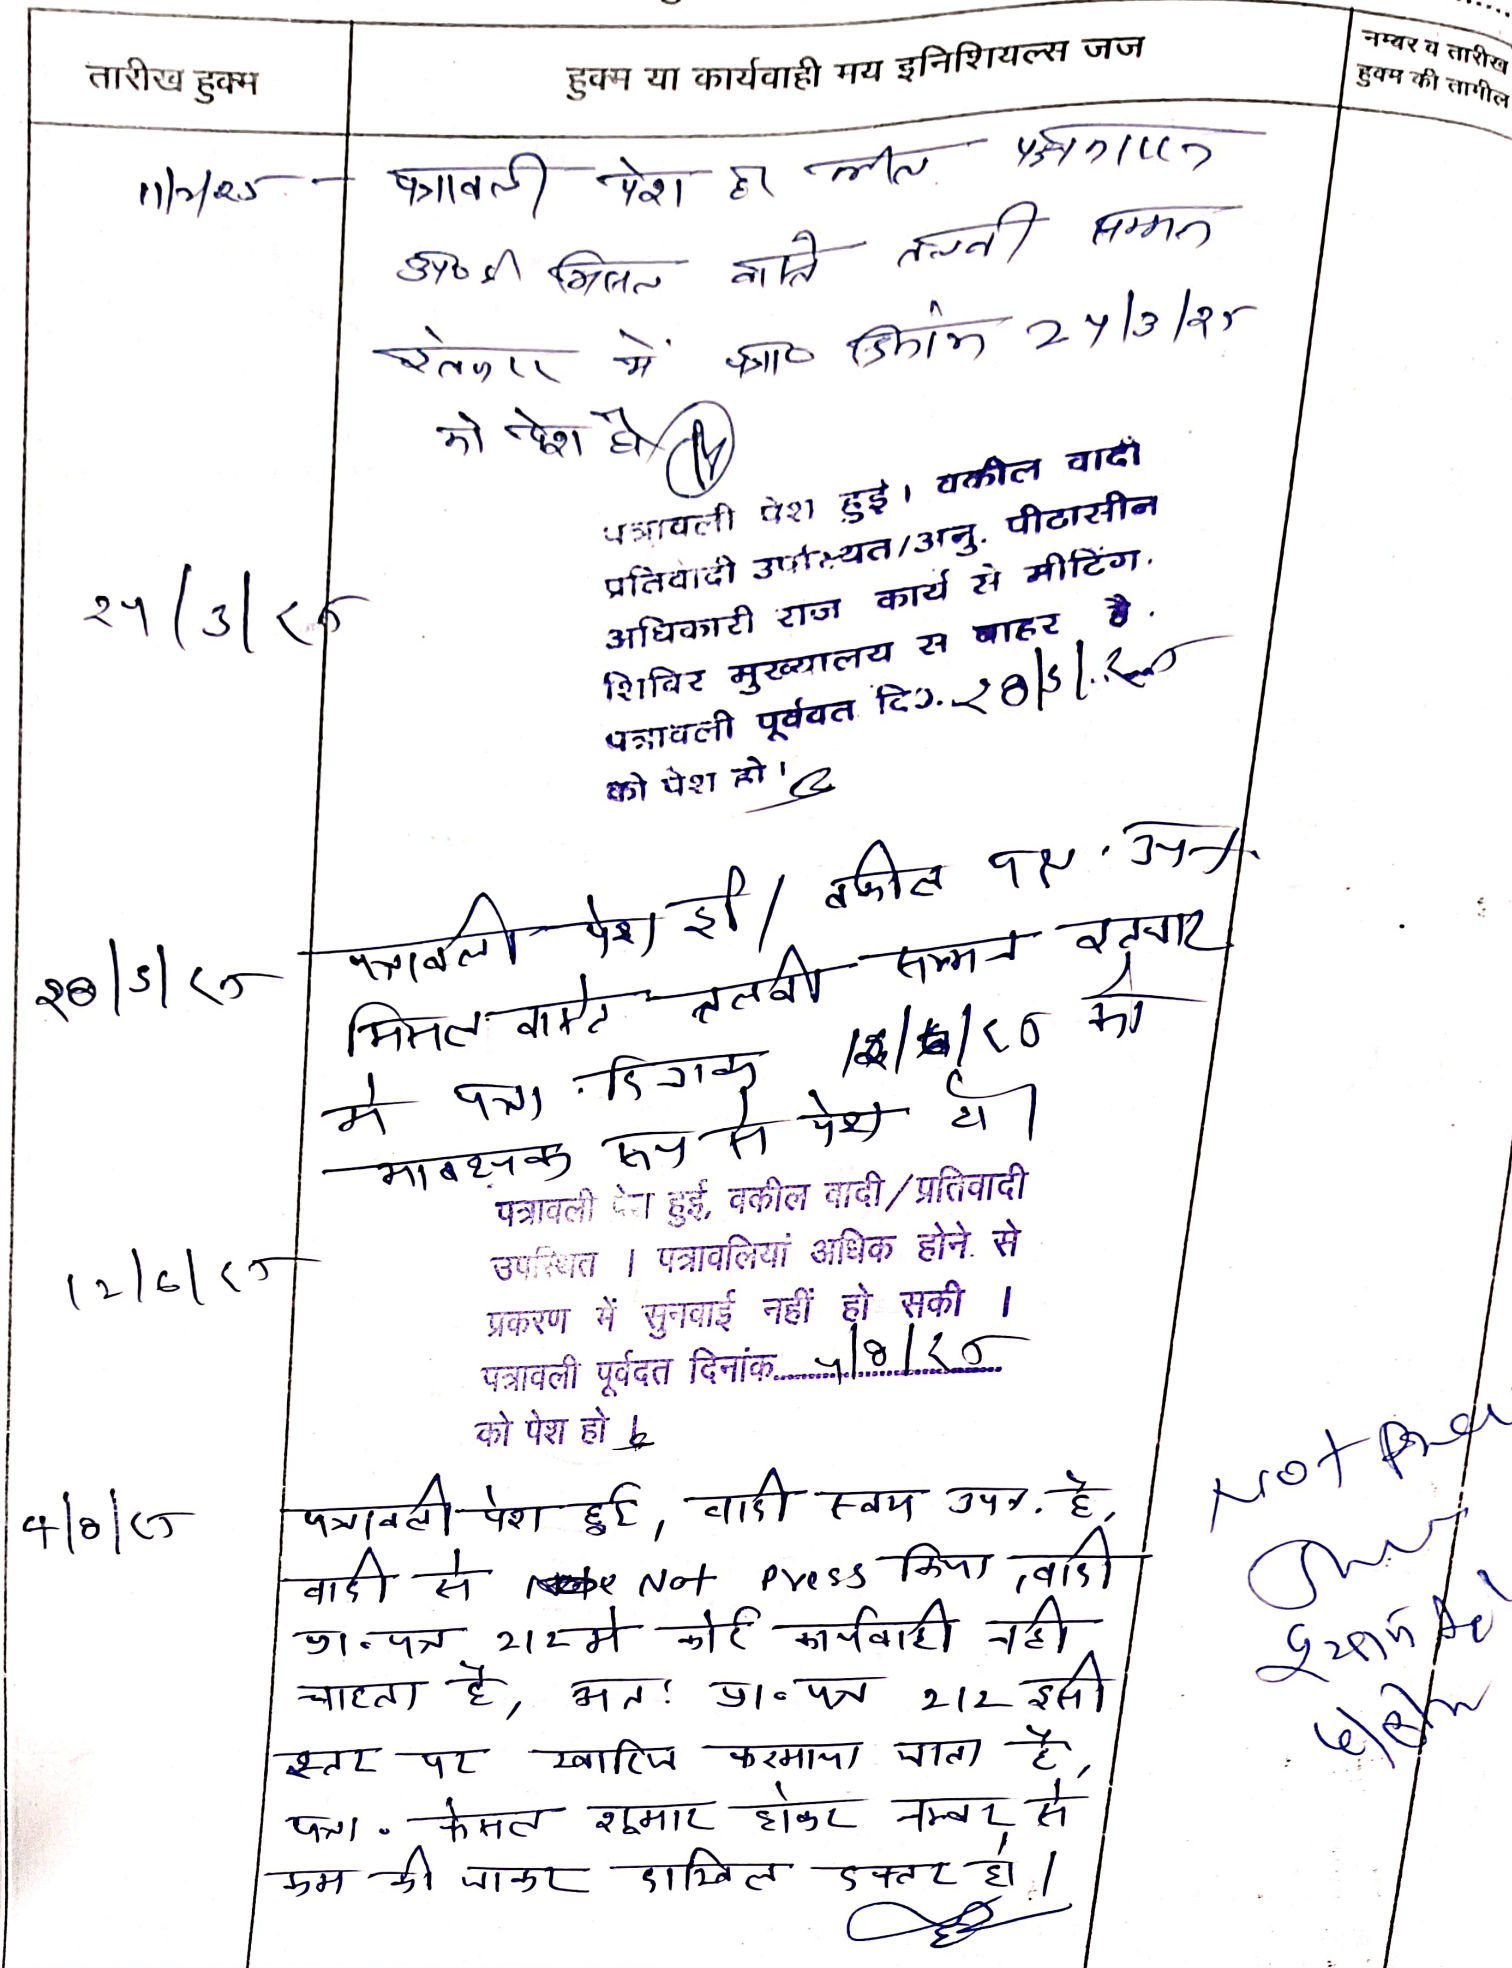 तारीख हुक्म
हुक्म या कार्यवाही मय इनिशियल्स जज
नम्बर व तारीख
हुक्म की तामील
11/2/25
पत्रावली पेश हो
तलबी सम्मन
में पत्रा० दिनांक 24/3/25
को पेश हो
24/3/25
पत्रावली पेश हुई। वकील वादी
प्रतिवादी उपस्थित/अनु. पीठासीन
अधिकारी राज कार्य से मीटिंग.
शिविर मुख्यालय स बाहर है.
पत्रावली पूर्ववत दि०. 28/5/25
को पेश हो।
28/5/25
पत्रावली पेश हुई/ वकील पक्ष. उप.
मिसल वास्ते तलबी सम्मन इन्तजार
मे पत्रा. दिनांक 12/6/25 को
आवश्यक रूप से पेश हो।
12/6/25
पत्रावली पेश हुई, वकील वादी/प्रतिवादी
उपस्थित । पत्रावलियां अधिक होने से
प्रकरण में सुनवाई नहीं हो सकी ।
पत्रावली पूर्वदत दिनांक 4/8/25
को पेश हो
4/8/25
पत्रावली पेश हुई, वादी स्वयं उप. है,
वादी से Not Press किया, वादी
प्रा.पत्र 212 मे कोई कार्यवाही नही
चाहता है, अतः प्रा.पत्र 212 इसी
स्तर पर खारिज फरमाया जाता है,
पत्रा. फेसल शूमार होकर नम्बर से
कम की जाकर दाखिल दफ्तर हो।
Not